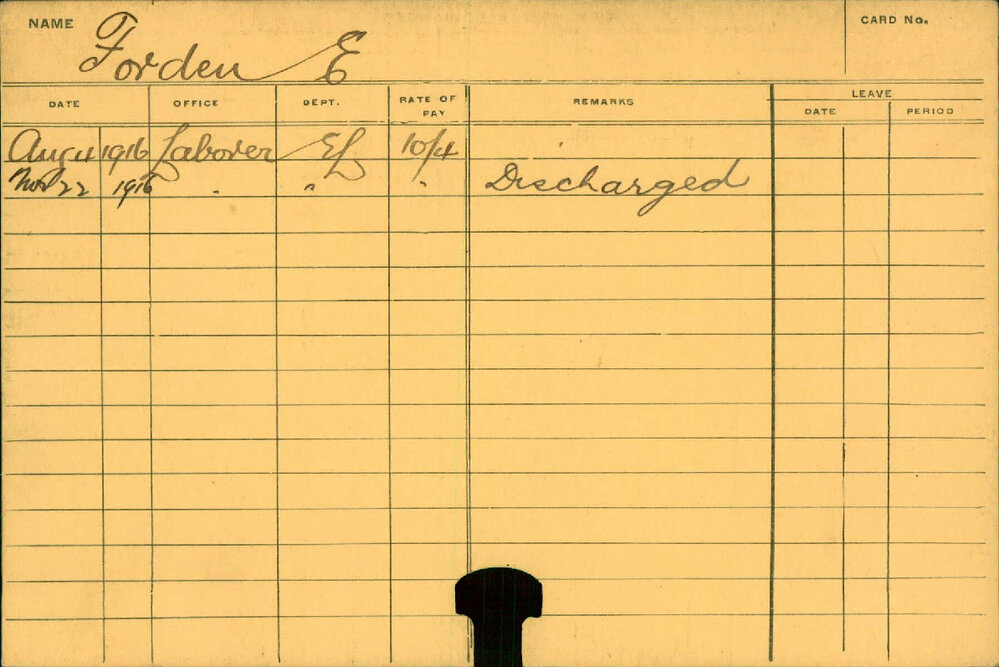 NAME Forden E CARD No.
DATE OFFICE DEPT. RATE OF PAY REMARKS LEAVE
DATE PERIOD
Aug 4 1916 Laborer EL 10/4
Nov 22 1916 " " " Discharged